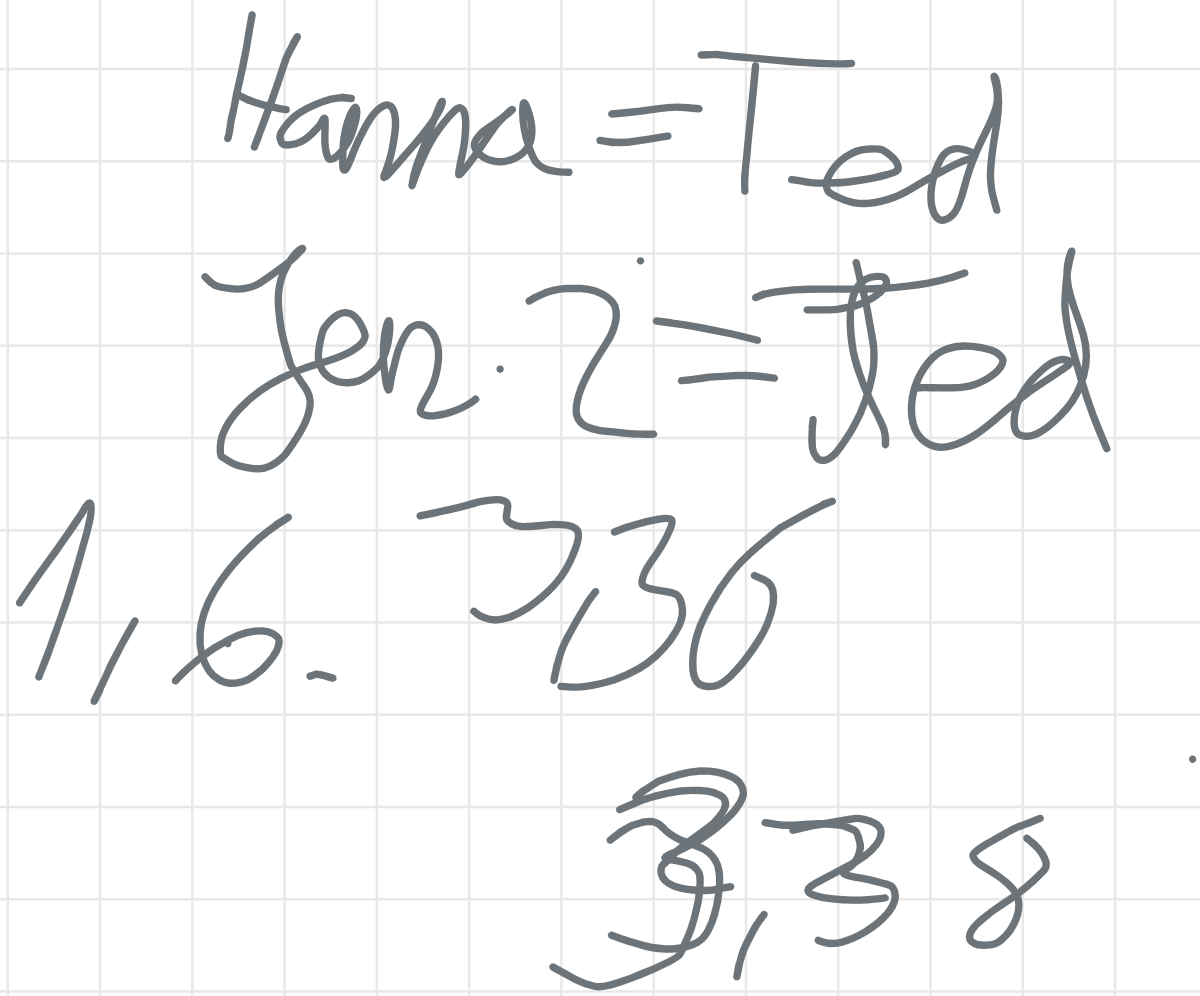 Hanna = Ted
Jen · 2 = Ted
1,6. 3,36
3,38